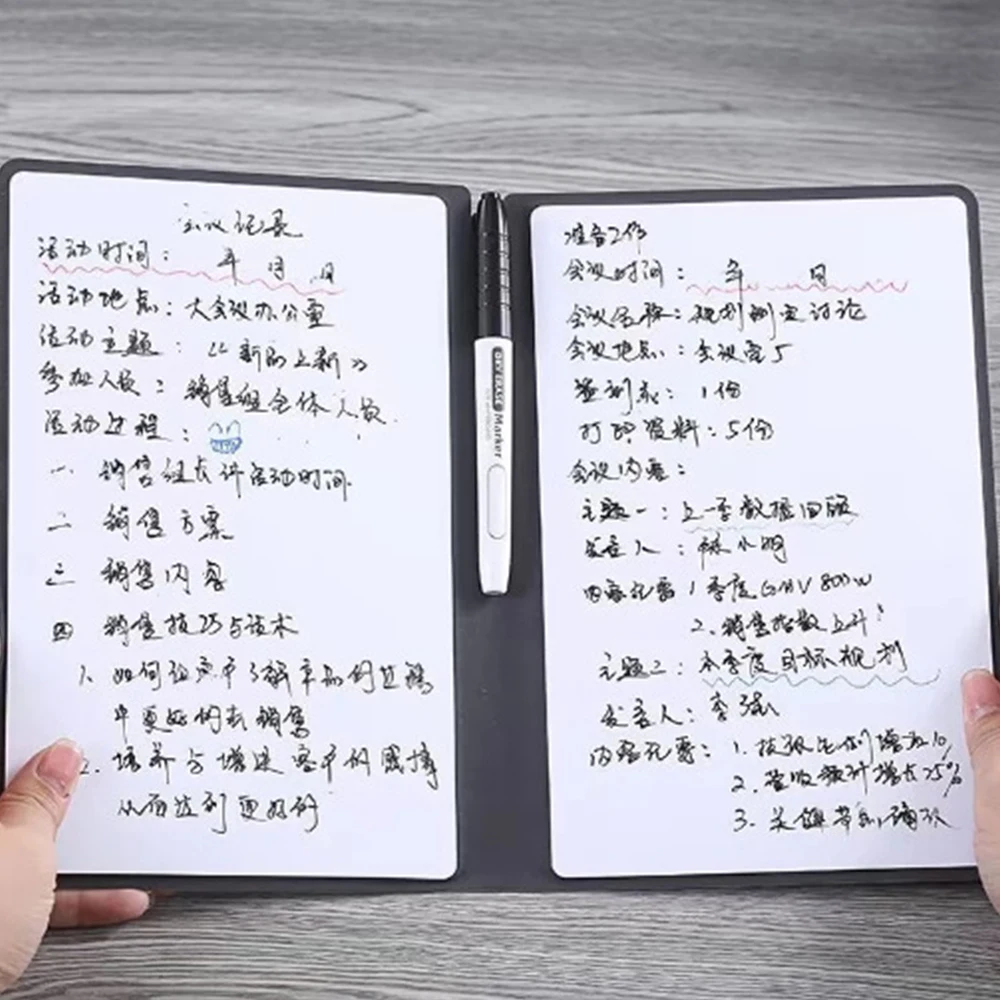 会议记录
活动时间： 年 月 日
活动地点：大会议办公室
活动主题：《新品上新》
参加人员：销售组全体人员
活动过程：
一 销售组长讲活动时间
二 销售方案
三 销售内容
四 销售技巧与话术
1. 如何让客户了解产品的过程
中更好的去销售
2. 培养与增进客户的感情
从而达到更好的
DRY ERASE Marker
准备工作
会议时间： 年 月
会议名称：规划制定讨论
会议地点：会议室5
签到表：1份
打印资料：5份
会议内容：
主题一：上一季数据回顾
发言人：林小明
内容记要 1季度GMV 800w
2. 销售指数上升
主题二：本季度目标规划
发言人：李强
内容记要：1.
2. 营收预计增长25%
3. 关键节点确认